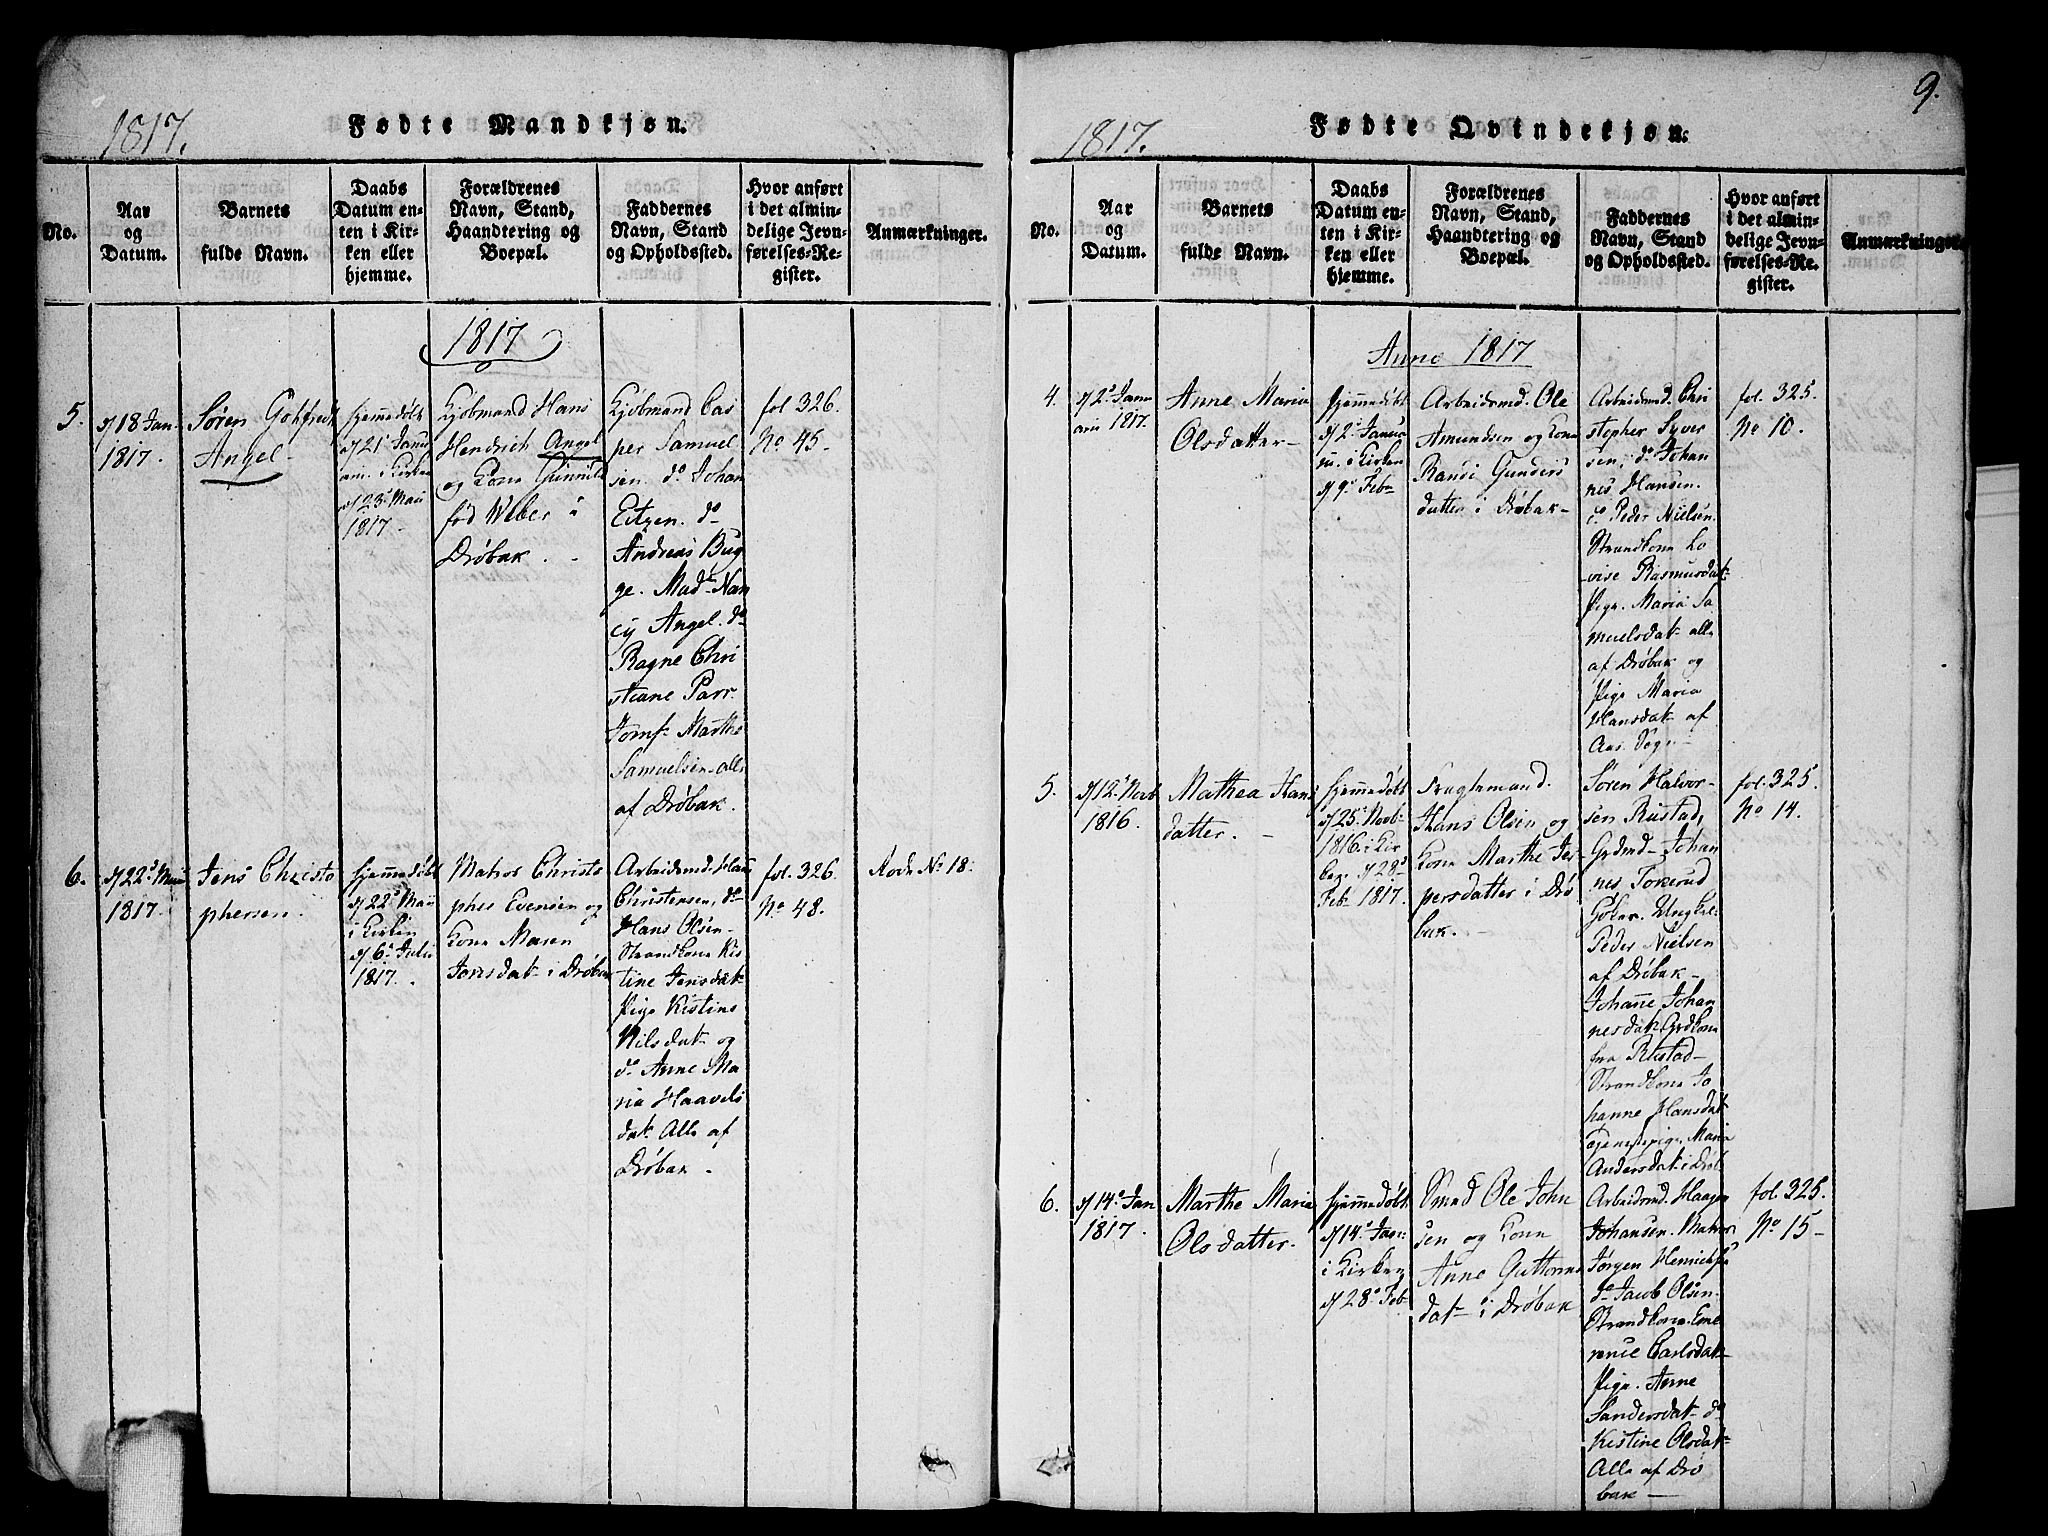 9.
1817.
Fødte Mandkjøn.
No.
Aar
og
Datum.
Barnets
fulde Navn.
Daabs
Datum en-
ten i Kir-
ken eller
hjemme.
Forældrenes
Navn, Stand,
Haandtering og
Boepæl.
Faddernes
Navn, Stand
og Opholdssted.
Hvor anført
i det almin-
delige Jevn-
førelses-Re-
gister.
Anmærkninger.
1817
5.
d/18 Jan.
1817.
Søren Gotfred
Angel
hjemmedøbt
d/21 Janu
arii. i Kirken
d/23 Maii
1817.
Kjøbmand Hans
Hendrich Angel
og Kone Gunnild
fød Weber i
Drøbak.
Kjøbmand Cas
per Samuel
sen. do Johan
Eitzen. do
Andreas Bug
ge. Mad. Nan
cy Angel. do
Ragne Chri
stiane Parr.
Jomf. Marthe
Samuelsen alle
af Drøbak.
fol 326.
No 45.
6.
d/22 Maii
1817.
Jens Christo
phersen.
hjemmedøbt
d/22 Maii
i Kirken
d/6 Julii
1817.
Matros Christo
pher Evensen og
Kone Maren
Jonsdat i Drøbak
Arbeidsmd. Hans
Christensen, do
Hans Olsen
Strandkone Kis
tine Jensdat
Pige Kistine
Nilsdat og
do Anne Ma
ria Haavels
dat. Alle af
Drøbak.
fol. 326.
No 48.
Rode No 18.
1817.
Fødte Qvindekjøn.
No.
Aar
og
Datum.
Barnets
fulde Navn.
Daabs
Datum en-
ten i Kir-
ken eller
hjemme.
Forældrenes
Navn, Stand,
Haandtering og
Boepæl.
Faddernes
Navn, Stand
og Opholdssted.
Hvor anført
i det almin-
delige Jevn-
førelses-Re-
gister.
Anmærkninger.
Anno 1817
4.
d/2 Janu
arii 1817.
Anne Maria
Olsdatter
hjemmedøbt
d/2 Janua
rii. i Kirken
d/9 Feb
Arbeidsmd. Ole
Amundsen og Kone
Randi Gunders
datter i Drøbak
Arbeidsmd. Chri
stopher Syver
sen, do Johan
nes Hansen.
Peder Nielsen.
Strandkone Lo
vise Rasmusdat
Pige. Maria Sa
muelsdat alle
af Drøbak og
Pige Maria
Hansdat af
Aas Sogn
fol. 325.
No 10.
5.
d/12 Novb
1816.
Mathea Hans
datter.
hjemmedøbt
d/25 Novb
1816. i Kir
ken d/28
Feb 1817.
Hans Olsen og
Kone Marthe Jes
persdatter i Drø
bak.
Søren Halvor-
sen Rustad,
Grdmd Johan
nes Tokerud
Peder Nielsen
af Drøbak
Johanne Johan
nesdat. Grdkone
fra Rustad
Strandkone Jo
hanne Hansdat
Tjenestepige Maria
Andersdat i Drøb
fol. 325.
No 14.
6.
d/14 Jan
1817.
Marthe Maria
Olsdatter.
hjemmedøbt
d/14 Jan
i Kirken
d/28 Feb
Smed Ole John
sen og Kone
Anne Guttorms
dat i Drøbak
Arbeidsmd. Haagen
Johansen. Matros
Jørgen Henrichs
do Jacob Olsen.
Strandkone Eme
rence Carlsdat
Pige. Anne
Sandersdat do
Kistine Olsdat
Alle af Drø
bak
fol. 325.
No 15